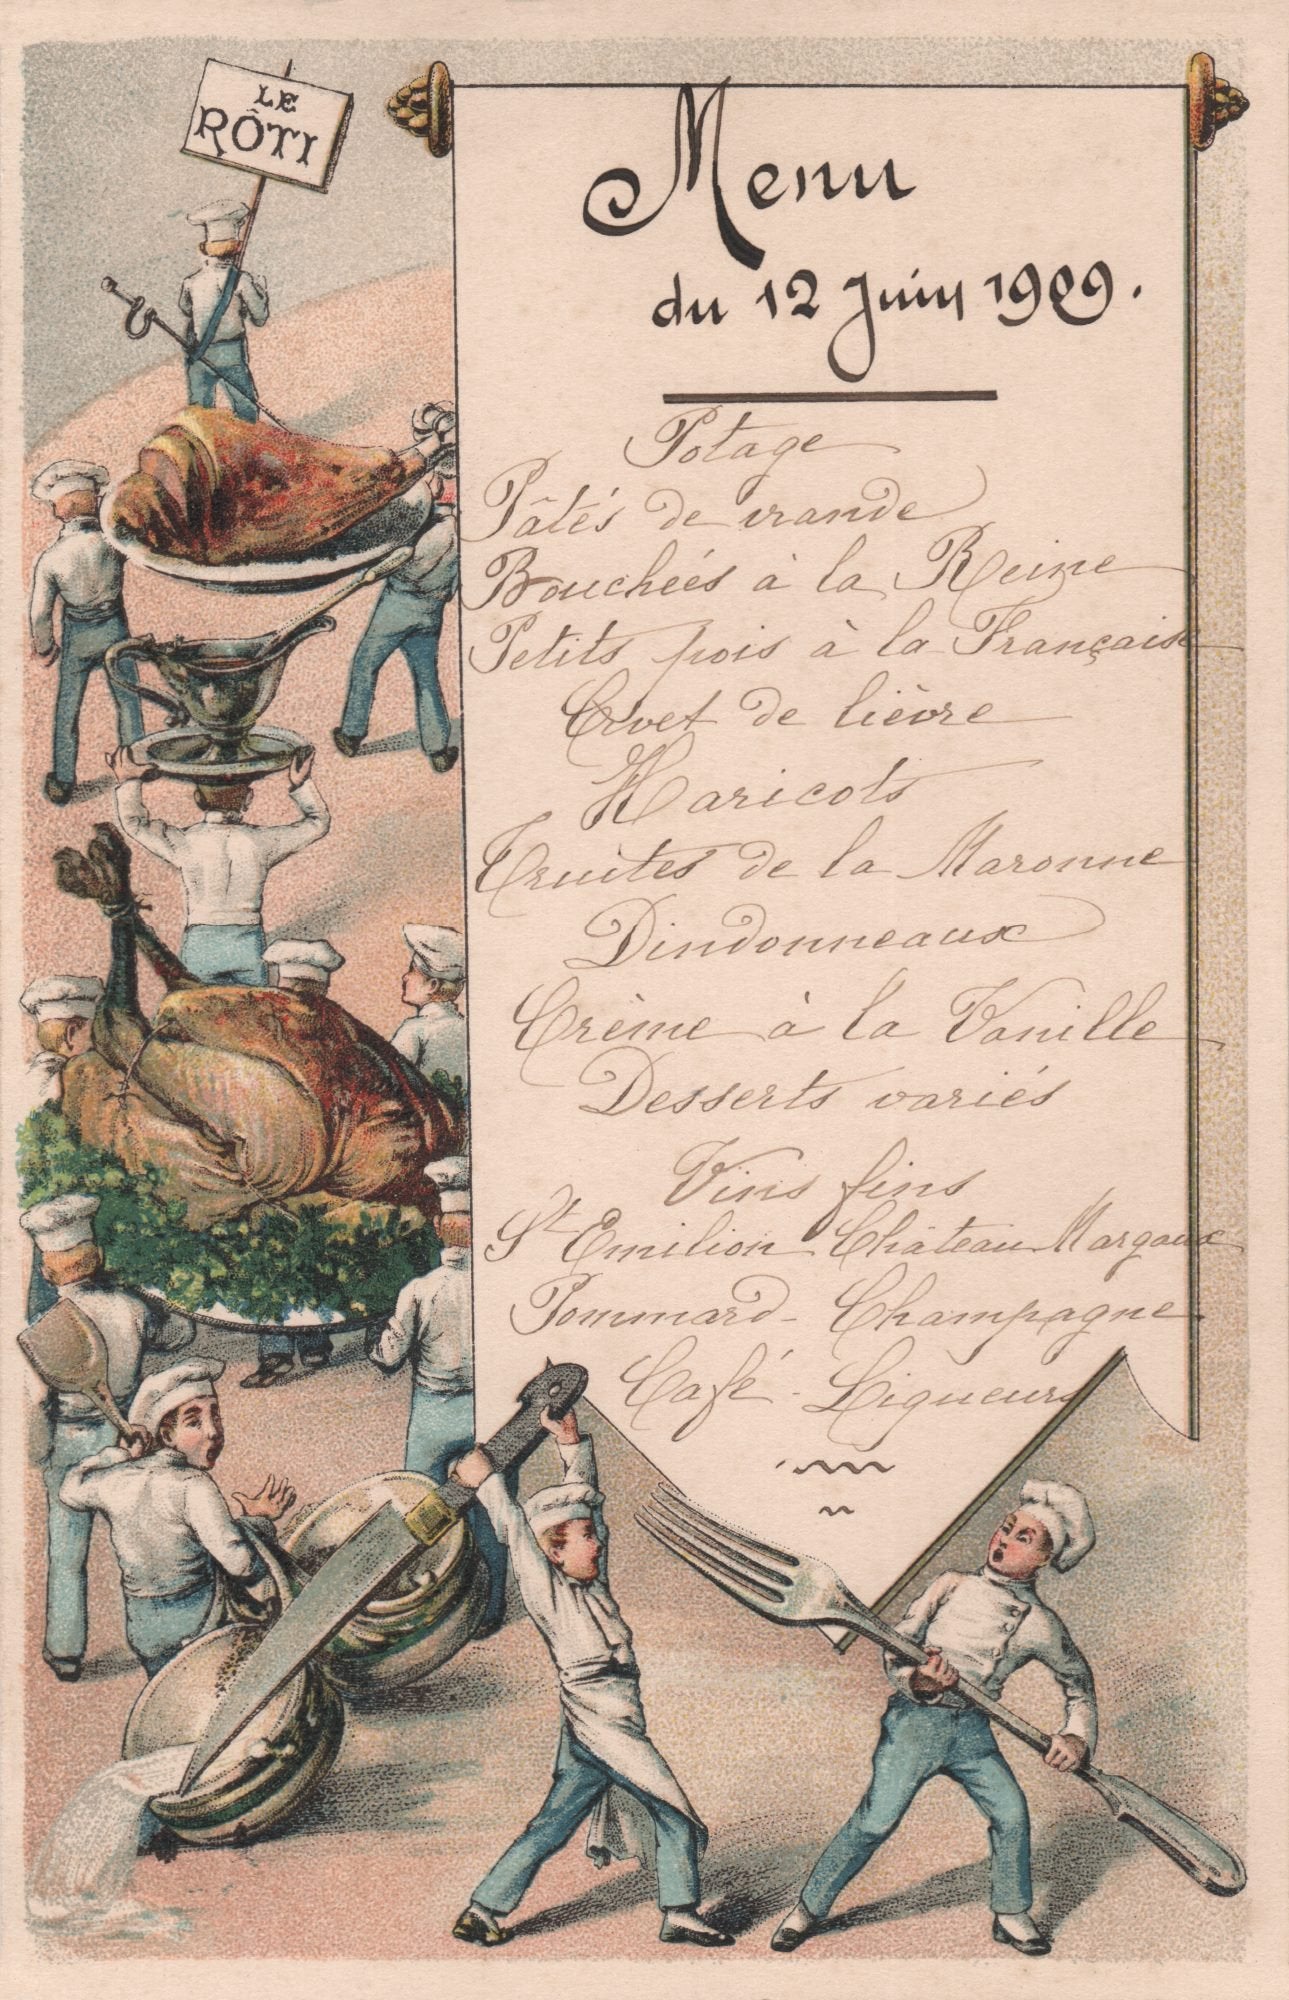 LE
RÔTI
Menu
du 12 Juin 1909.
Potage
Pâtés de viande
Bouchées à la Reine
Petits pois à la Française
Civet de lièvre
Haricots
Truites de la Maronne
Dindonneaux
Crème à la Vanille
Desserts variés
Vins fins
St Emilion Château Margaux
Pommard - Champagne
Café - Liqueurs